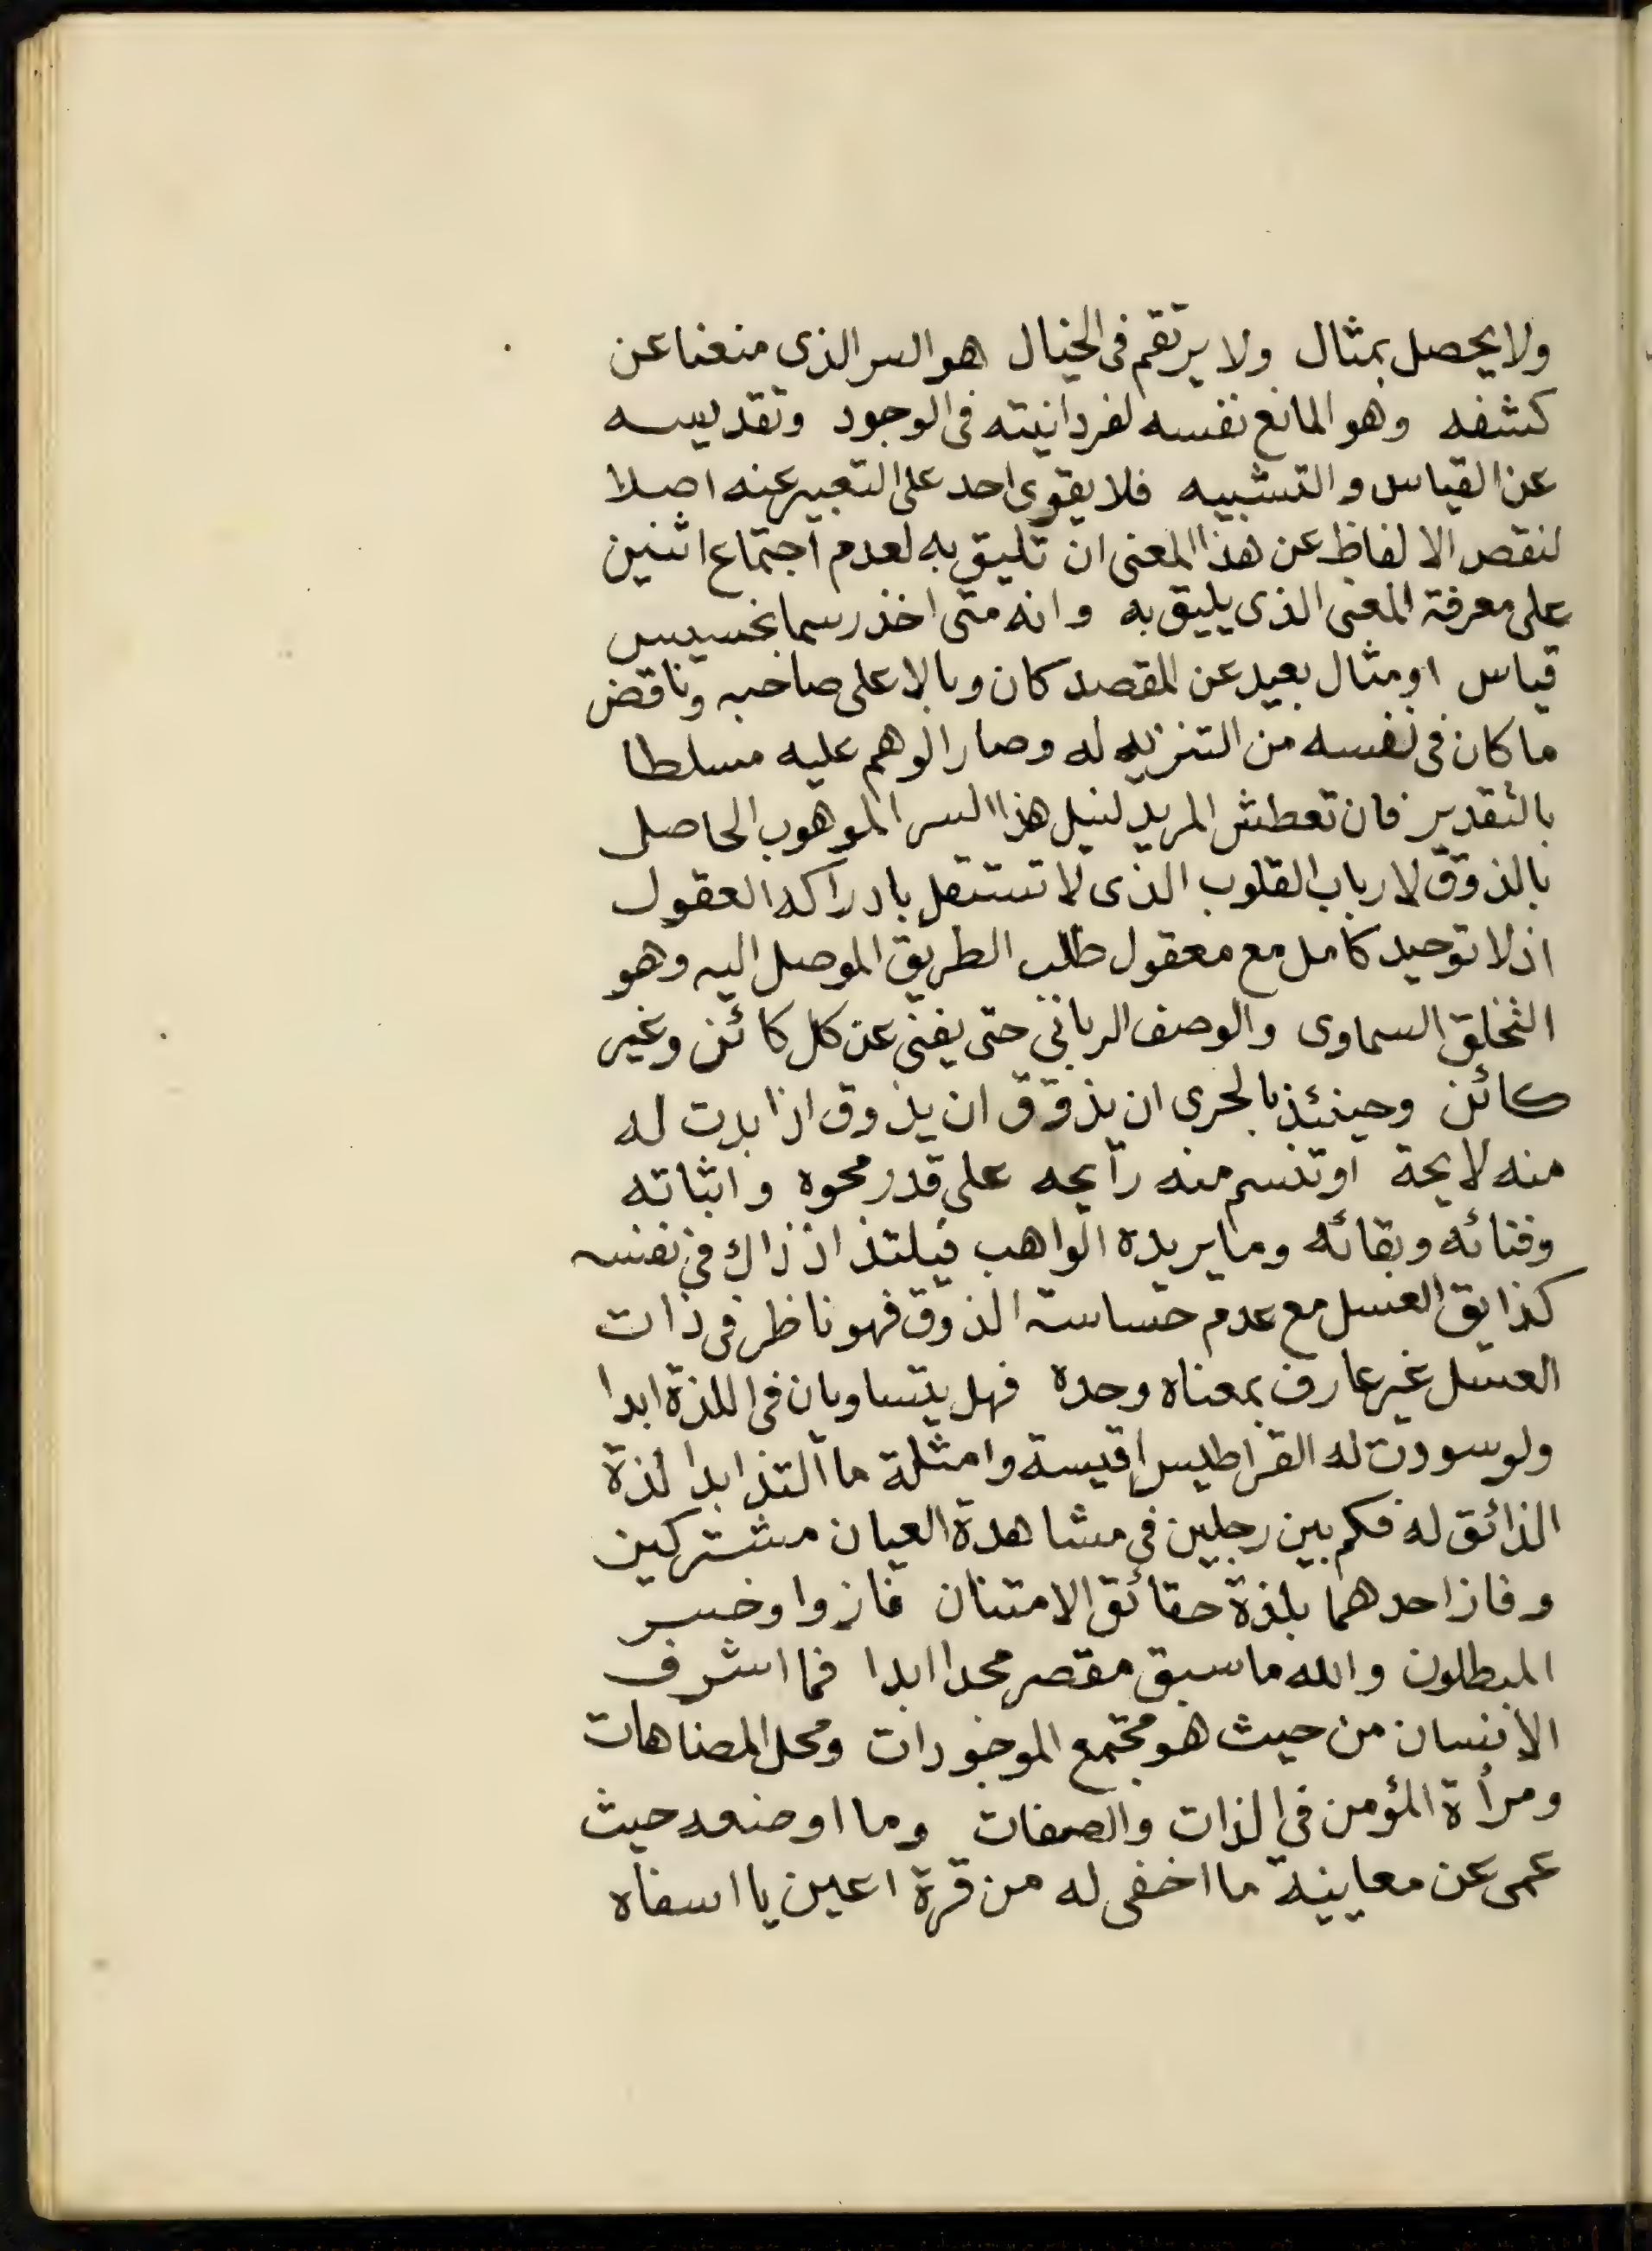 ولا يحصل بمثال ولا يرتقم فى الخيال هو السر الذى منعنا عن
كشفه وهو المانع نفسه لفردانيته فى الوجود وتقديسه
عن القياس والتشبيه فلا يقوى احد على التعبير عنه اصلا
لنقص الالفاظ عن هذا المعنى ان تليق به لعدم اجتماع اثنين
على معرفة المعنى الذى يليق به وانه متى اخذ رسما بخسيس
قياس او مثال بعيد عن المقصد كان وبالا على صاحبه وناقض
ما كان فى نفسه من التنزيه له وصار الوهم عليه مسلطا
بالتقدير فان تعطش المريد لنيل هذا السر الموهوب الحاصل
بالذوق لارباب القلوب الذى لا تستقل بادراكه العقول
اذ لا توحيد كامل مع معقول طلب الطريق الموصل اليه وهو
التخلق السماوى والوصف الربانى حتى يفنى عن كل كائن وغير
كائن وحينئذ بالحرى ان يذوق ان يذوق اذا بدت له
منه لايحة او تنسم منه رايحه على قدر محوه واثباته
وفنائه وبقائه وما يريده الواهب فيلتذ اذ ذاك فى نفسه
كذايق العسل مع عدم حساسة الذوق فهو ناظر فى ذات
العسل غير عارف بمعناه وحده فهل يتساويان فى اللذة ابدا
ولو سودت له القراطيس اقيسة وامثلة ما التذ ابدا لذة
الذائق له فكم بين رجلين فى مشاهدة العيان مشتركين
وفاز احدهما بلذة حقائق الامتنان فازوا وخسر
المبطلون والله ما سبق مقصر مجدا ابدا فما اشرف
الانسان من حيث هو مجتمع الموجودات ومحل المضاهات
ومرأة المؤمن فى الذات والصفات وما اوضعه حيث
عمى عن معاينة ما اخفى له من قرة اعين يا اسفاه